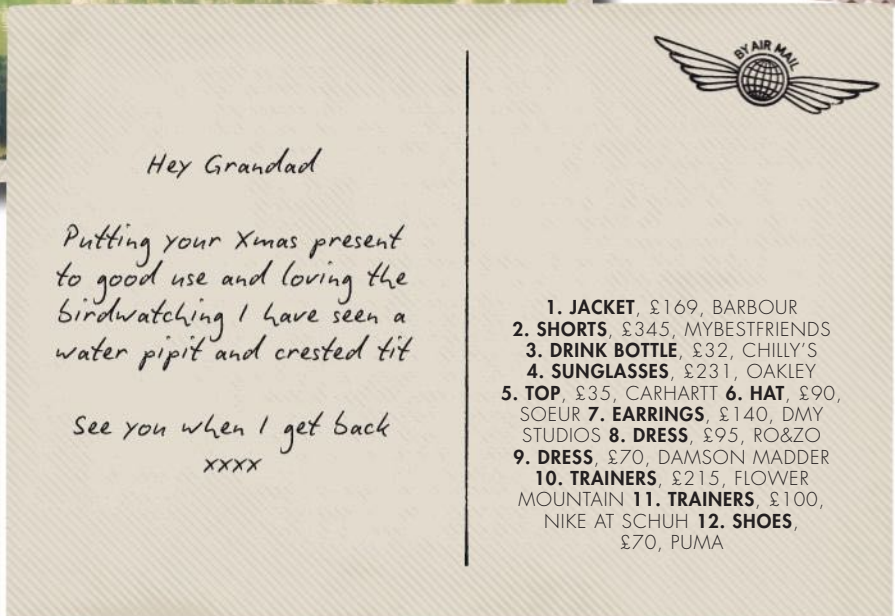 Hey Grandad
Putting your Xmas present
to good use and loving the
birdwatching I have seen a
water pipit and crested tit
See you when I get back
xxxx
BY AIR MAIL
1. JACKET, £169, BARBOUR
2. SHORTS, £345, MYBESTFRIENDS
3. DRINK BOTTLE, £32, CHILLY'S
4. SUNGLASSES, £231, OAKLEY
5. TOP, £35, CARHARTT 6. HAT, £90,
SOEUR 7. EARRINGS, £140, DMY
STUDIOS 8. DRESS, £95, RO&ZO
9. DRESS, £70, DAMSON MADDER
10. TRAINERS, £215, FLOWER
MOUNTAIN 11. TRAINERS, £100,
NIKE AT SCHUH 12. SHOES,
£70, PUMA